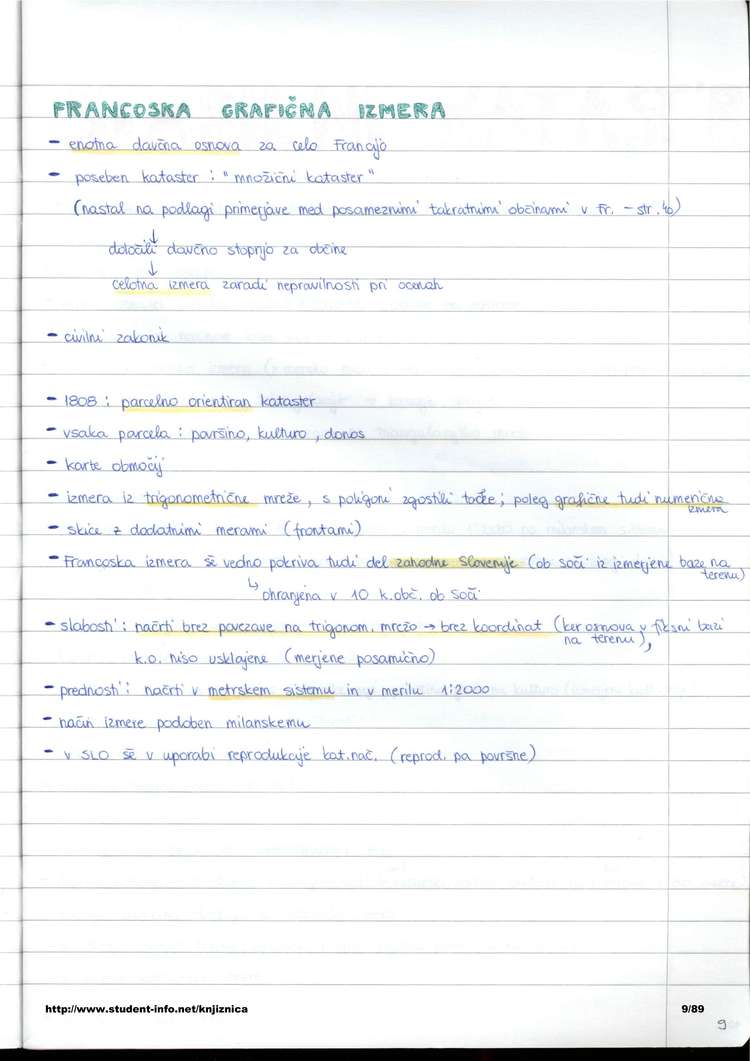 FRANCOSKA GRAFIČNA IZMERA
- enotna davčna osnova za celo Francijo
- poseben kataster : "množični kataster"
(nastal na podlagi primerjave med posameznimi takratnimi občinami v Fr. - str. 40)
↓
določili davčno stopnjo za občine
↓
celotna izmera zaradi nepravilnosti pri ocenah
- civilni zakonik
- 1808 : parcelno orientiran kataster
- vsaka parcela : površino, kulturo, donos
- karte območij
- izmera iz trigonometrične mreže, s poligoni zgostili točke; poleg grafične tudi numerična
izmera
- skice z dodatnimi merami (frontami)
- Francoska izmera še vedno pokriva tudi del zahodne Slovenije (ob Soči iz izmerjene baze na
terenu)
↳ ohranjena v 10 k.obč. ob Soči
- slabosti : načrti brez povezave na trigonom. mrežo → brez koordinat (ker osnova v fiksni bazi
na terenu),
k.o. niso usklajene (merjene posamično)
- prednosti : načrti v metrskem sistemu in v merilu 1:2000
- način izmere podoben milanskemu
- v SLO še v uporabi reprodukcije kat.nač. (reprod. pa površne)
http://www.student-info.net/knjiznica
9/89
9